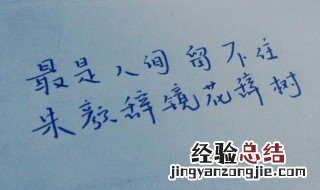 最是人间留不住
朱颜辞镜花辞树
经验总结
www.jingyanzongjie.com